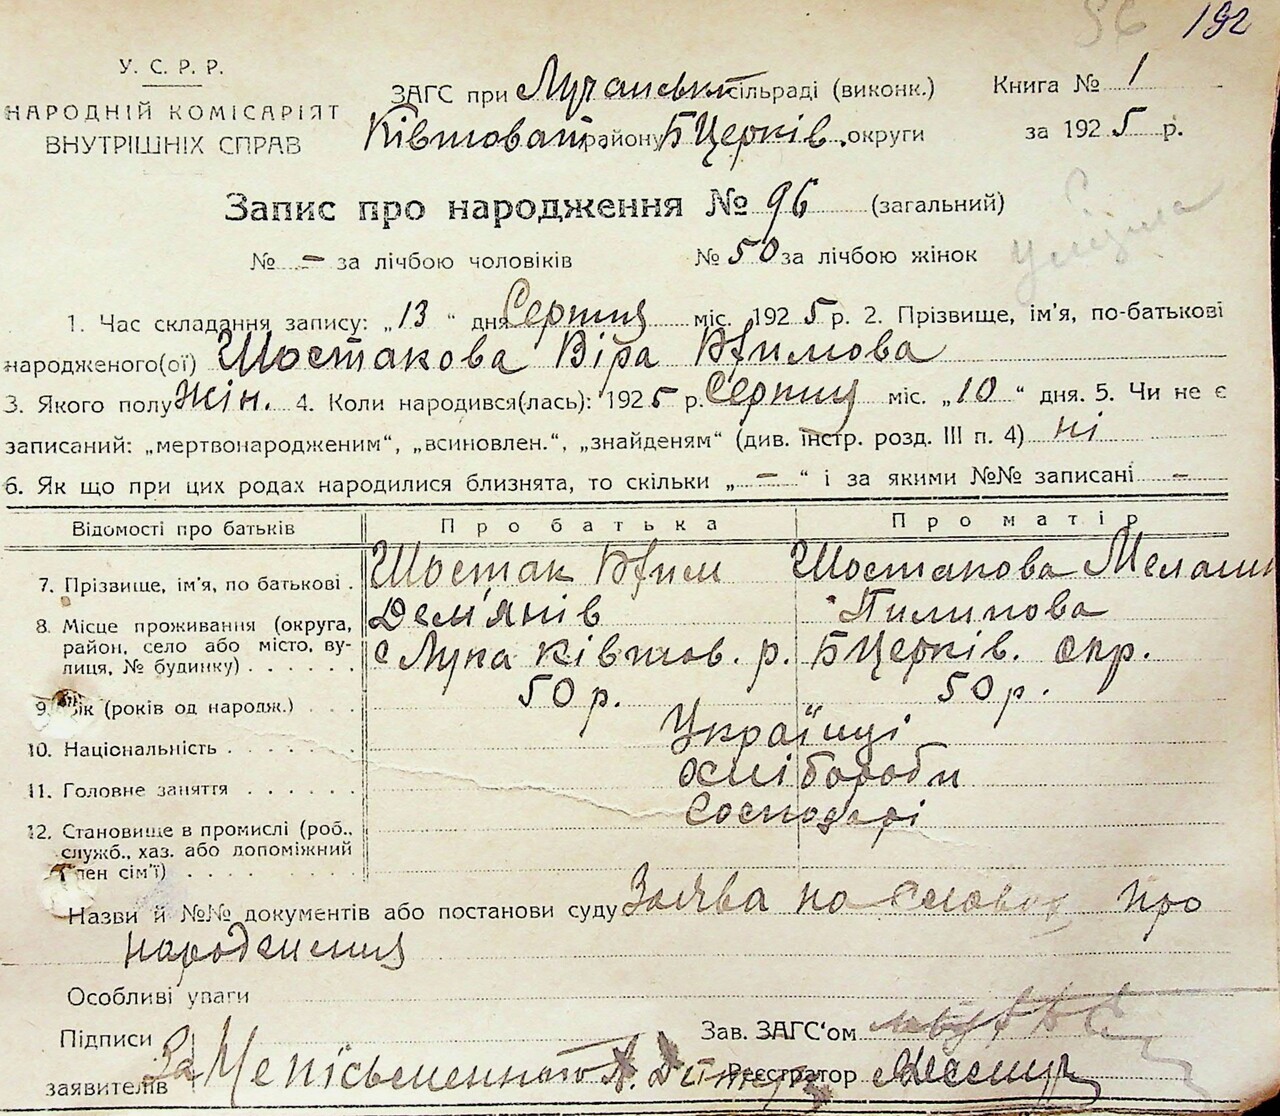 192
У. С. Р. Р.
НАРОДНІЙ КОМІСАРІЯТ
ВНУТРІШНІХ СПРАВ
ЗАГС при Лучанській сільраді (виконк.) Книга № 1
Ківшоват. району БЦерків. округи за 1925 р.
Запис про народження № 96 (загальний)
№ – за лічбою чоловіків № 50 за лічбою жінок
1. Час складання запису: „13“ дня Серпня міс. 1925 р. 2. Прізвище, ім'я, по-батькові
народженого(ої) Шостакова Віра Юхимова
3. Якого полу жін. 4. Коли народився(лась): 1925 р. Серпня міс. „10“ дня. 5. Чи не є
записаний: „мертвонародженим“, „всиновлен.“, „знайденям“ (див. інстр. розд. III п. 4) ні
6. Як що при цих родах народилися близнята, то скільки „–“ і за якими №№ записані –
Відомості про батьків Про батька Про матір
7. Прізвище, ім'я, по батькові . Шостак Шостакова
Дем'янів Пилипова
8. Місце проживання (округа,
район, село або місто, ву-
лиця, № будинку) . . . . . с Лука Ківшов. р. БЦерків. окр.
9. Вік (років од народж.) . . . 50 р. 50 р.
10. Національність . . . . . . Українці
11. Головне заняття . . . . . . хлібороби
12. Становище в промислі (роб.,
служб., хаз. або допоміжний
член сім'ї) . . . . . . . . Господарі
Назви й №№ документів або постанови суду Заява на словах про
народження
Особливі уваги
Підписи
заявителів За Неписьменного
Зав. ЗАГС'ом
Реєстратор